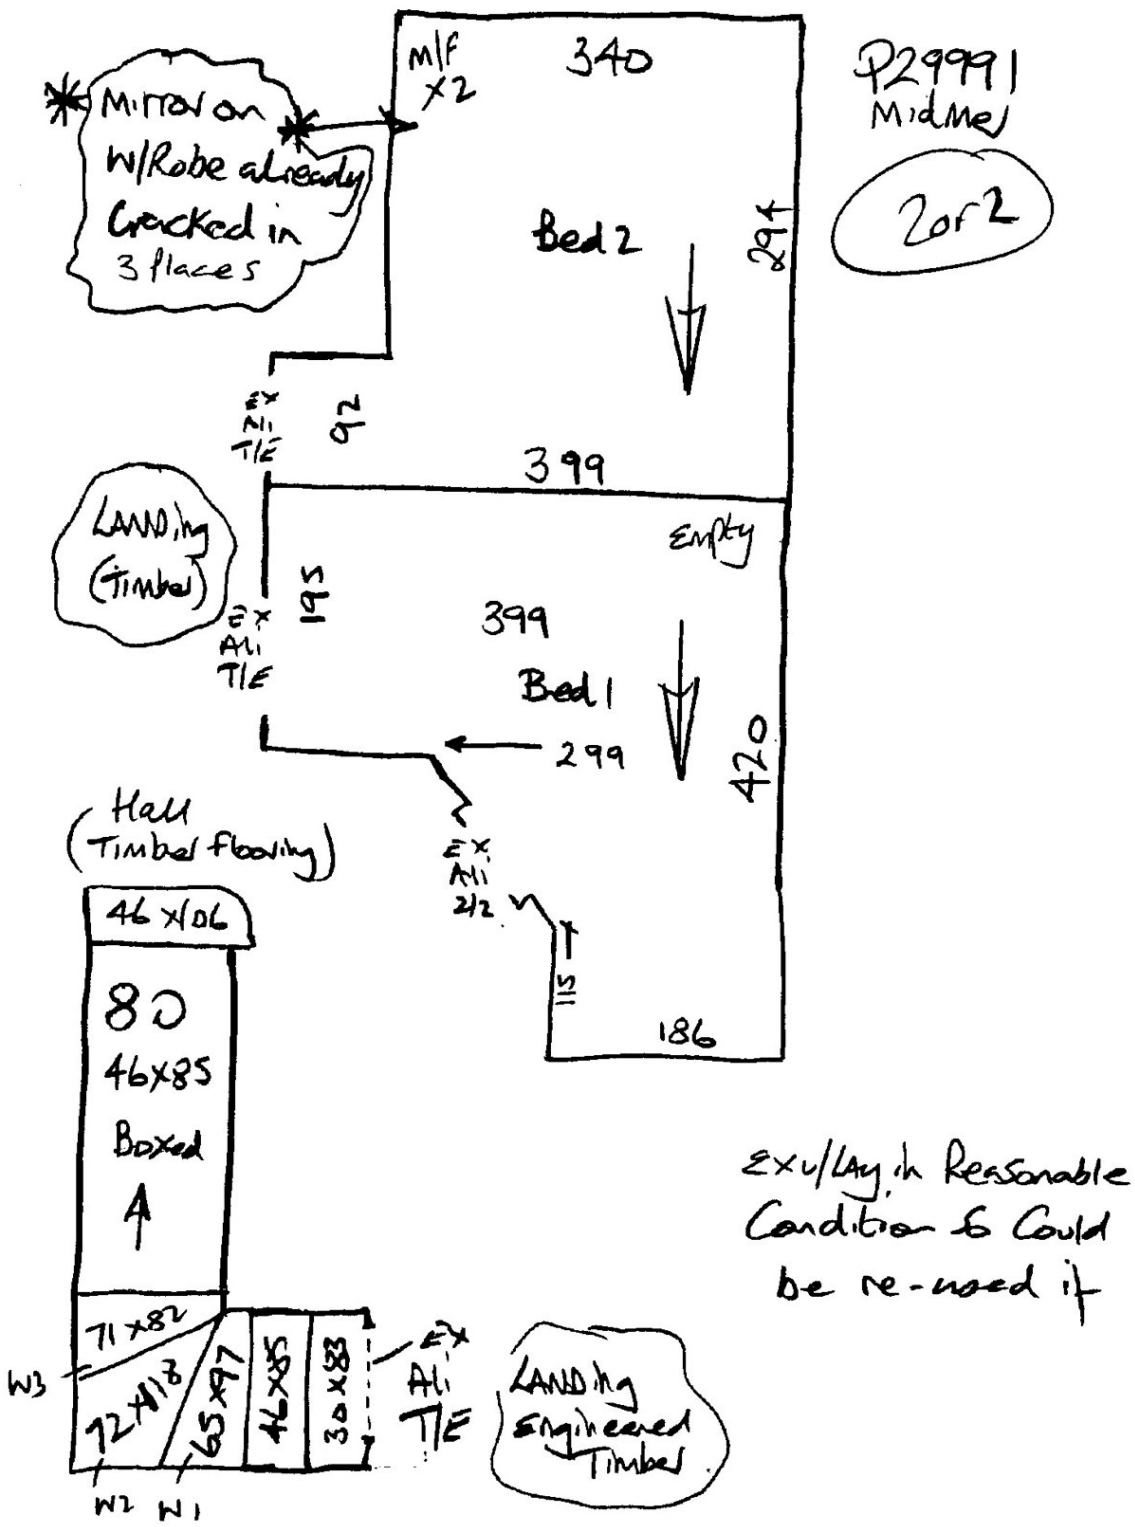 P29991
Midmer
2 of 2
M/F
X2
340
* Mirror on *
W/Robe already
Cracked in
3 Places
Bed 2
294
EX
Ali
T/E
92
399
Empty
LANDing
(Timber)
195
EX
Ali
T/E
399
Bed 1
299
420
EX
Ali
2/2
115
186
Hall
(Timber flooring)
46 x 106
80
46x85
Boxed
71 x 82
W3
92 x 118
65 x 97
46x85
30 x 83
W2 W1
EX
Ali
T/E
LANDing
Engineered
Timber
Ex u/Lay in Reasonable
Condition So Could
be re-used if